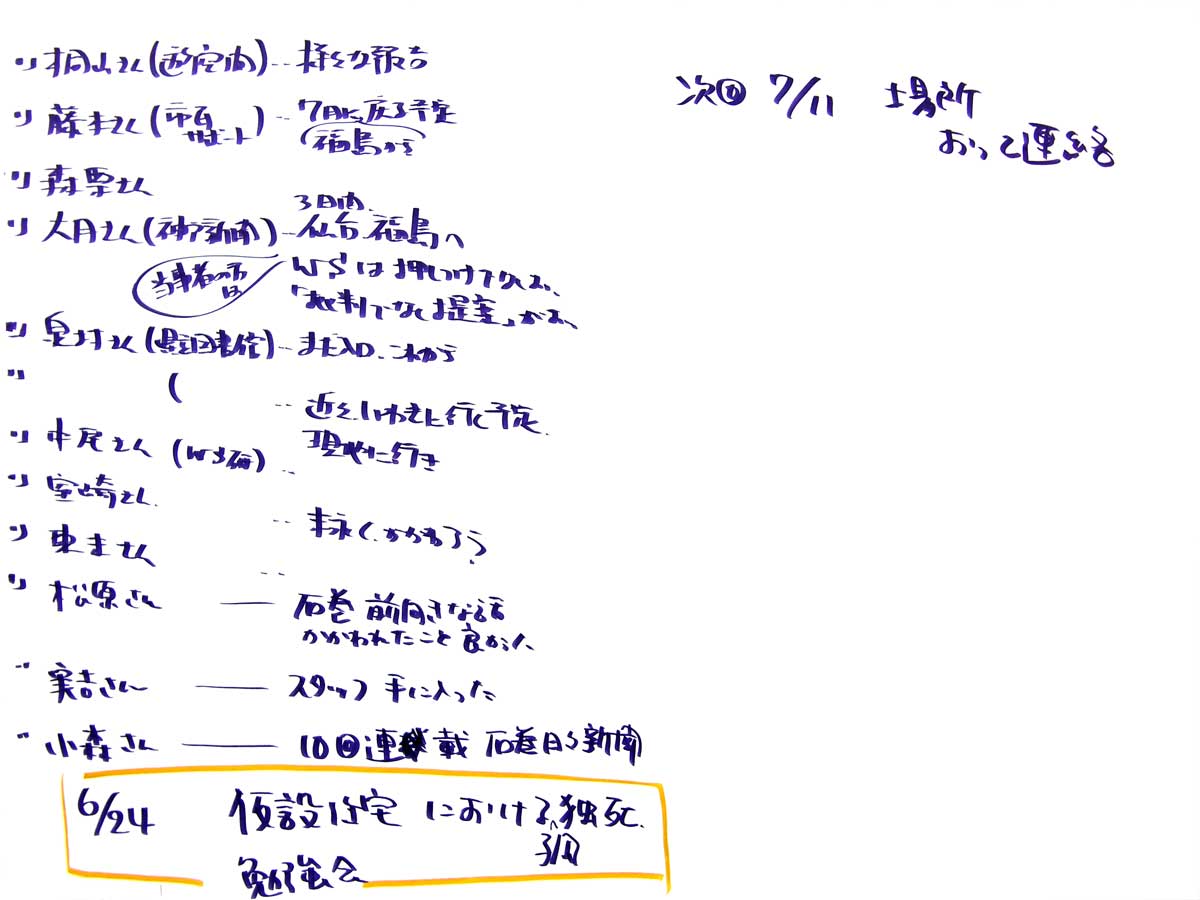 〃 桐山さん( )‥様々な報告
〃 藤本さん(市民サポート)‥7月に戻る予定
(福島から
〃 森栗さん
〃 大月さん(神戸新聞)‥仙台 福島へ
3日内、
当事者の方は
WSは押しつけでない、
「批判でなく提案」が
〃 ‥ これから
〃 (
‥近く、いわきに行く予定.
現地に行き
〃 中尾さん (WS研)‥
〃 宮崎さん.
‥ かかわろう?
〃 東末さん
‥
〃 松原さん — 石巻 前向きな話
かかわれたこと 良かった
〃 実吉さん — スタッフ 手に入った
〃 小森さん — 10回連載 石巻日々新聞
6/24 仮設住宅 における 独死.
孤
勉強会
次回 7/11 場所
おって連絡